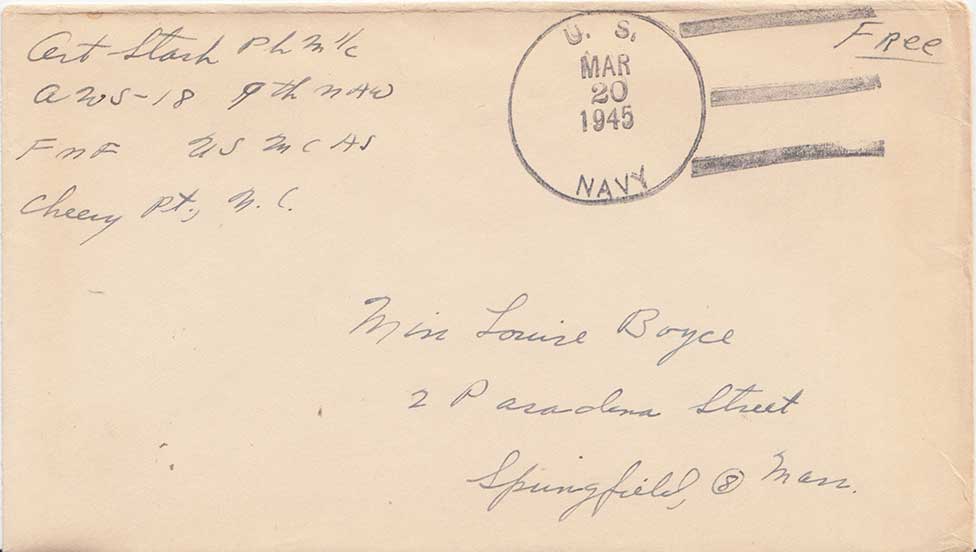 Art Stash PhM 1/c
AWS-18 9th MAW
FMF US MCAS
Cherry Pt., N.C.
U. S.
MAR
20
1945
NAVY
Free
Miss Louise Boyce
2 Pasadena Street
Springfield, 8 Mass.